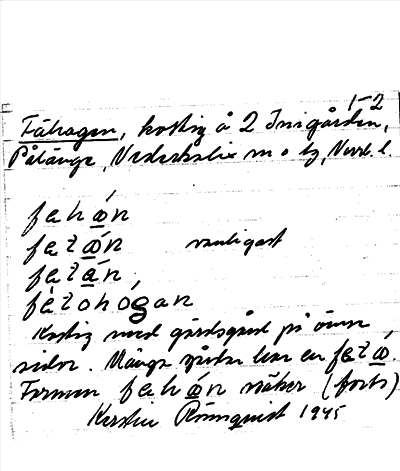 1-2
Fähagen, kostig å 2 Inigården,
Pålänge, Nederkalix sn o tg, Norrb. l.
fæhǿn
fæzǿn vanligast
fæzán,
fæzohogan
Kostig med gärdsgård på ömse
sidor. Många gårdar har en fæzø.
Formen fæhøn säker (forts)
Kerstin Rönnquist 1945